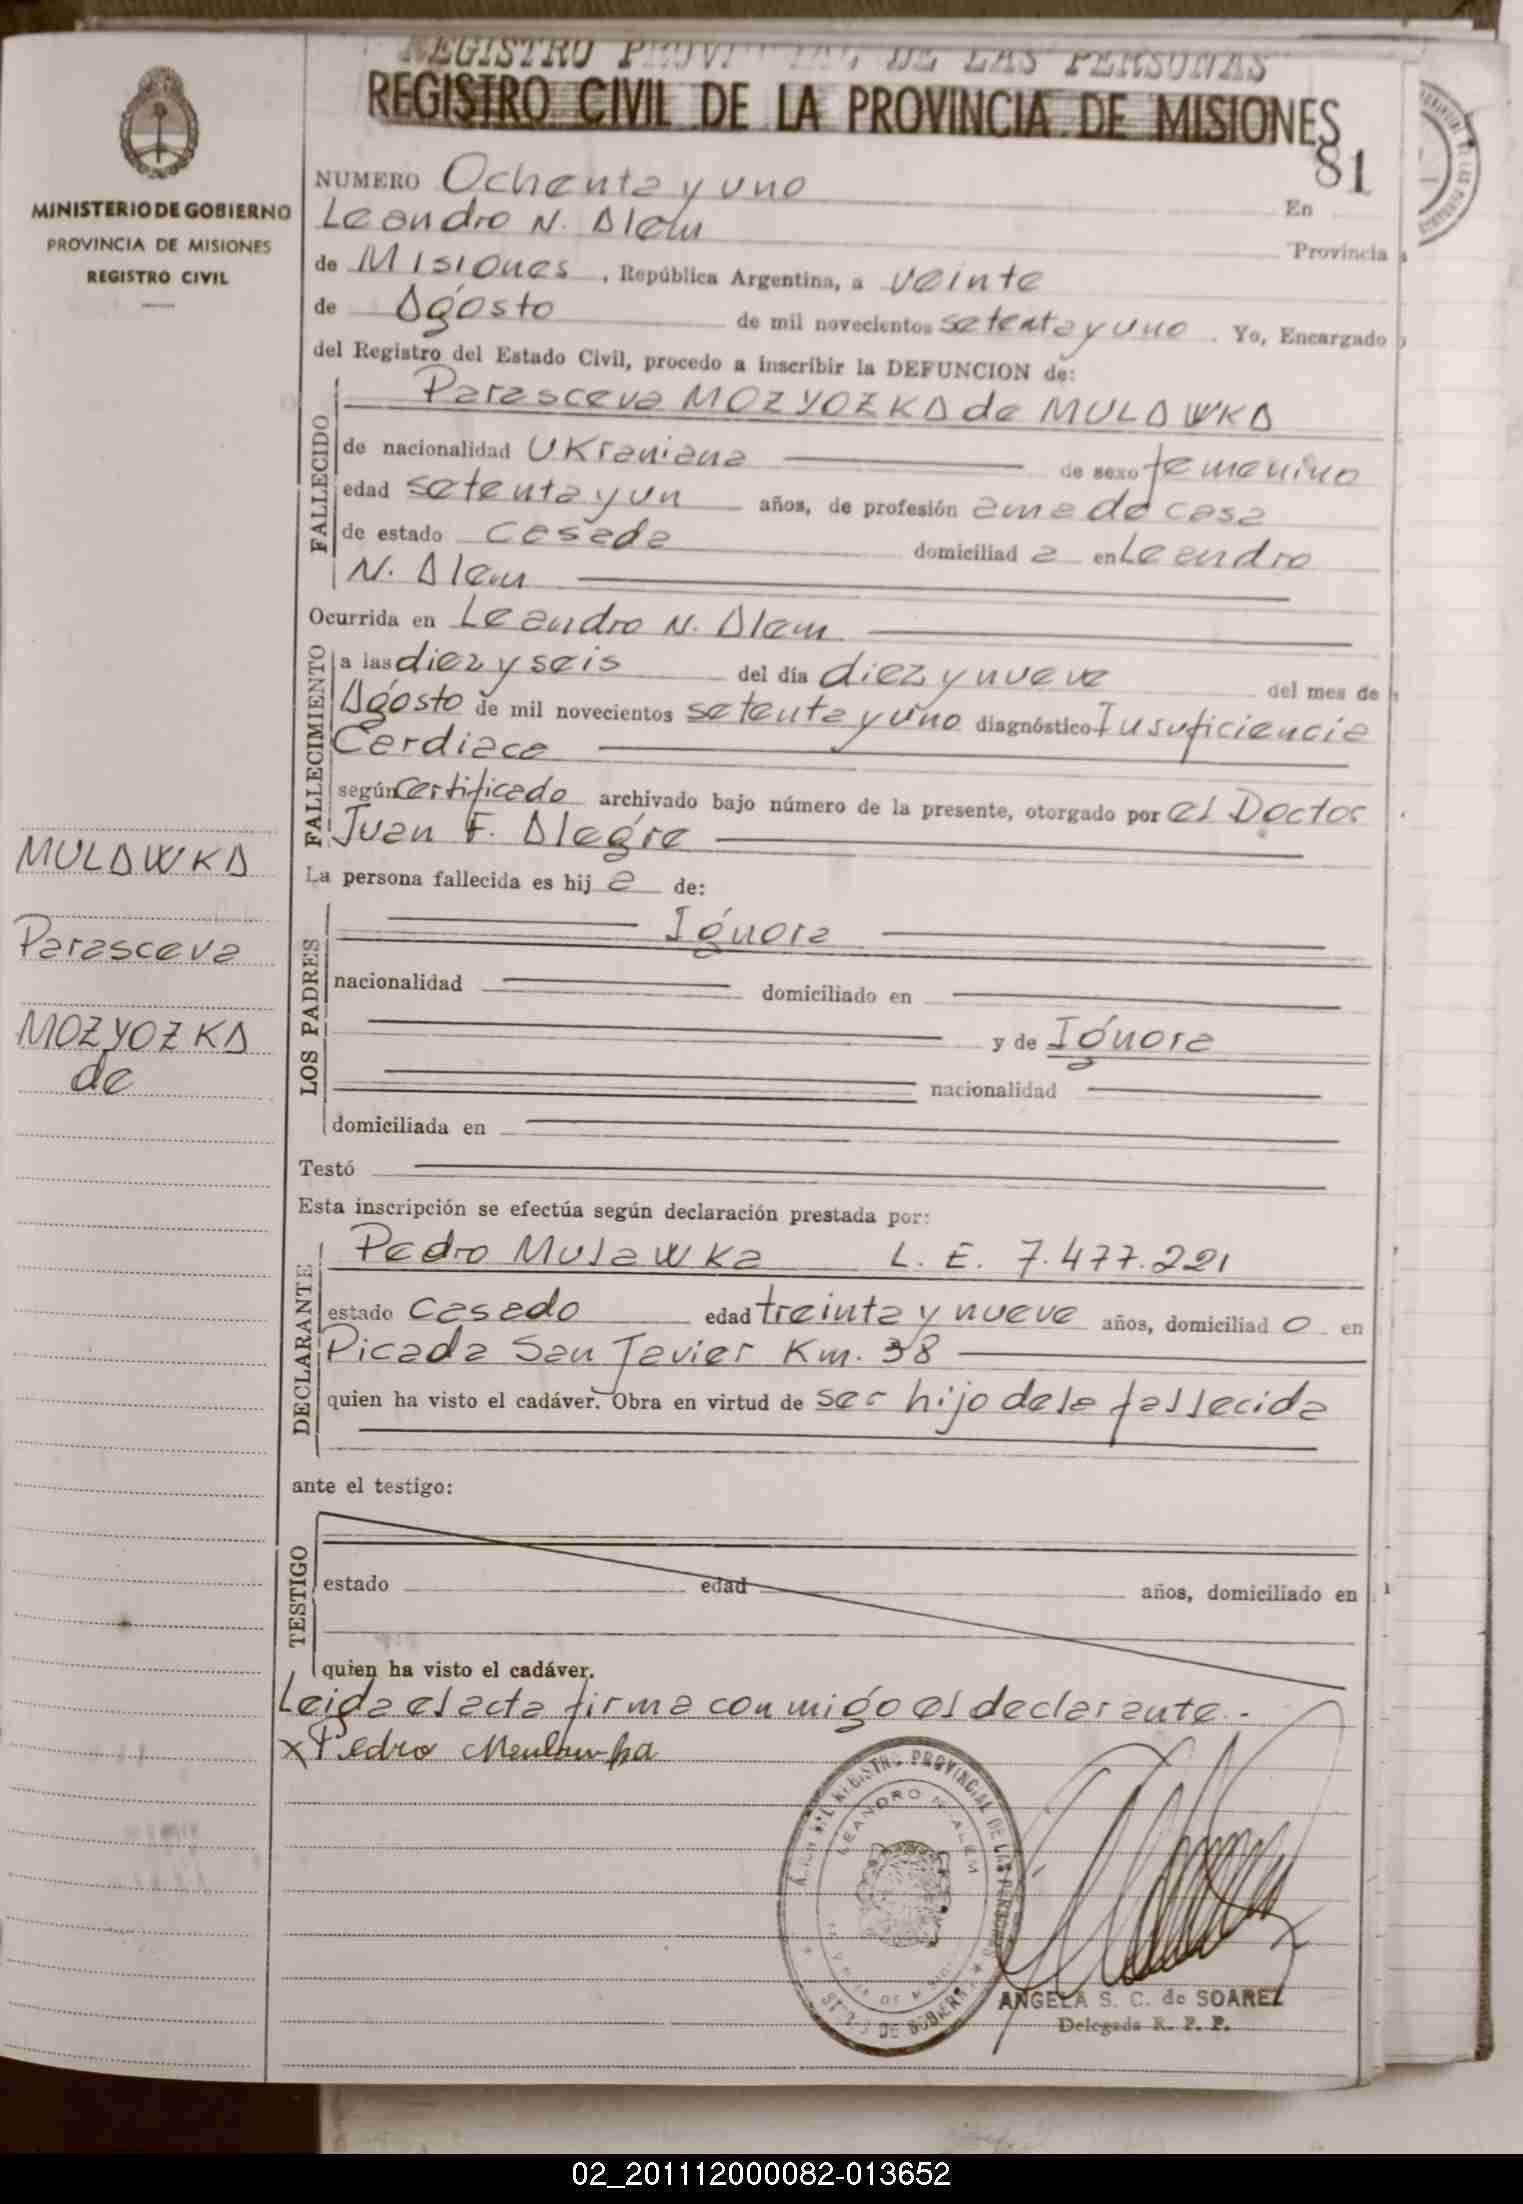 REGISTRO PROVINCIAL DE LAS PERSONAS
REGISTRO CIVIL DE LA PROVINCIA DE MISIONES
81
MINISTERIO DE GOBIERNO
PROVINCIA DE MISIONES
REGISTRO CIVIL
NUMERO Ochenta y uno En
Leandro N. Alem Provincia
de Misiones, República Argentina, a veinte
de Agosto de mil novecientos setenta y uno. Yo, Encargado
del Registro del Estado Civil, procedo a inscribir la DEFUNCION de:
FALLECIDO
Parasceva MOZYOZKA de MULAWKA
de nacionalidad Ukraniana de sexo femenino
edad setenta y un años, de profesión ama de casa
de estado casada domiciliad a en Leandro
N. Alem
Ocurrida en Leandro N. Alem
FALLECIMIENTO
a las diez y seis del día diez y nueve del mes de
Agosto de mil novecientos setenta y uno diagnóstico Insuficiencia
Cardiaca
según certificado archivado bajo número de la presente, otorgado por el Doctor
Juan F. Alegre
La persona fallecida es hij a de:
LOS PADRES
Ignora
nacionalidad domiciliado en
y de Ignora
nacionalidad
domiciliada en
Testó
Esta inscripción se efectúa según declaración prestada por:
DECLARANTE
Pedro Mulawka L. E. 7.477.221
estado casado edad treinta y nueve años, domiciliad o en
Picada San Javier Km. 38
quien ha visto el cadáver. Obra en virtud de ser hijo de la fallecida
ante el testigo:
TESTIGO
estado edad años, domiciliado en
quien ha visto el cadáver.
Leida el acta firma conmigo el declarante.-
x Pedro Mulawka
MULAWKA
Parasceva
MOZYOZKA
de
REGISTRO PROVINCIAL DE LAS PERSONAS
LEANDRO N. ALEM
DE GOBIERNO
ANGELA S. C. de SOAREZ
Delegada R. P. P.
02_201112000082-013652